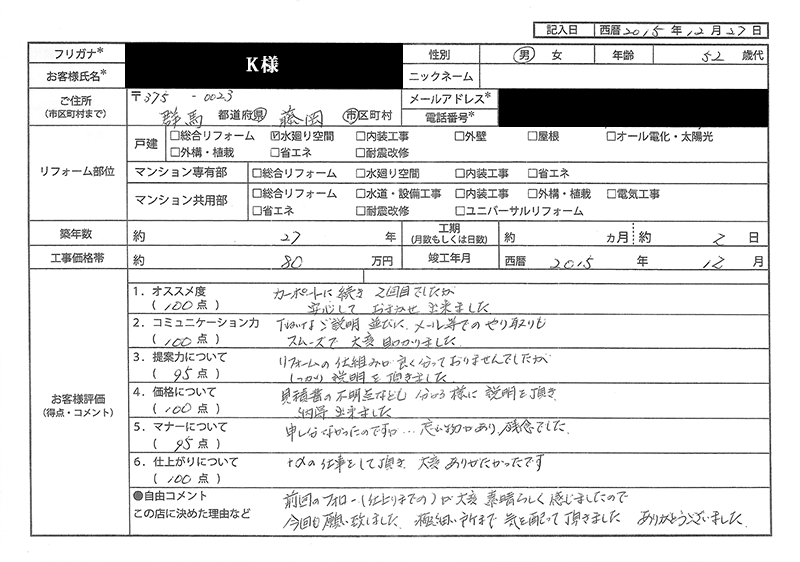 記入日 西暦 2015 年 12 月 27 日
フリガナ* K様 性別 男 女 年齢 52 歳代
お客様氏名* ニックネーム
ご住所 (市区町村まで) 〒375-0023 メールアドレス*
群馬 都道府県 藤岡 市区町村 電話番号*
リフォーム部位 戸建 □総合リフォーム ☑水廻り空間 □内装工事 □外壁 □屋根 □オール電化・太陽光
□外構・植栽 □省エネ □耐震改修
マンション専有部 □総合リフォーム □水廻り空間 □内装工事 □省エネ
マンション共用部 □総合リフォーム □水道・設備工事 □内装工事 □外構・植栽 □電気工事
□省エネ □耐震改修 □ユニバーサルリフォーム
築年数 約 27 年 工期 (月数もしくは日数) 約 ヵ月 約 2 日
工事価格帯 約 80 万円 竣工年月 西暦 2015 年 12 月
お客様評価 (得点・コメント)
1．オススメ度 カーポートに続き 2回目でしたが
(100点) 安心して おまかせ 出来ました
2．コミュニケーション力 ていねいなご説明 並びに、メール等でのやり取りも
(100点) スムーズで 大変 助かりました.
3．提案力について リフォームの仕組みが良く分っておりませんでしたが
(95点) しっかり 説明を頂きました.
4．価格について 見積書の不明点なども 分かる様に 説明を頂き
(100点) 納得 出来ました
5．マナーについて 申し分なかったのですが… 忘れ物があり、残念でした.
(95点)
6．仕上がりについて +αの仕事をして頂き 大変 ありがたかったです
(100点)
●自由コメント 前回のフォロー(仕上りまでの)が大変 素晴らしく感じましたので
この店に決めた理由など 今回も願い致しました. 極細い所まで 気を配って頂きました ありがとうございました.